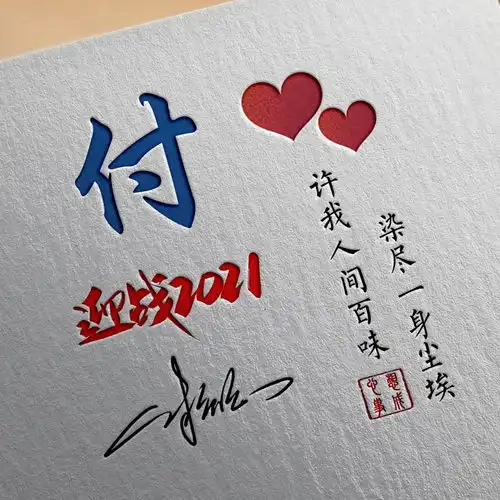 付
迎战2021
染尽一身尘埃
许我人间百味
心想事成